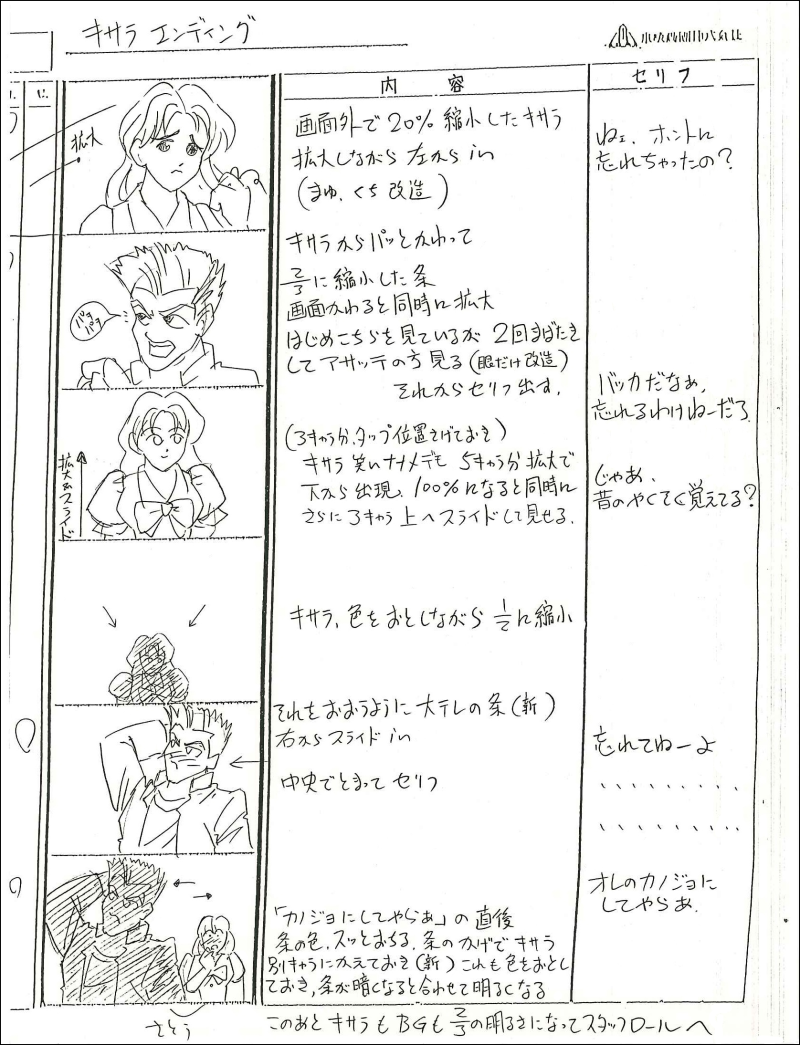 キサラ エンディング
内容
セリフ
拡大
画面外で20%縮小したキサラ
拡大しながら 左から in
(まゆ、くち 改造)
ねェ、ホントに
忘れちゃったの?
キサラからパッとかわって
2/3に縮小した条
画面かわると同時に拡大
はじめこちらを見ているが 2回まばたき
してアサッテの方見る(眼だけ改造)
それからセリフ出す。
パチ
パチ
バッカだなぁ、
忘れるわけねーだろ
(3キャラ分、タップ位置さげておき)
キサラ 笑いナナメデモ 5キャラ分拡大で
下から出現、100%になると同時に
さらに3キャラ 上へスライドして見せる。
拡大&スライド
じゃあ、
昔のやくそく覚えてる?
キサラ、色をおとしながら 1/2に縮小
それをおおうように 大テレの条(新)
右からスライド in
中央でとまって セリフ
忘れてねーよ
、、、、、、、、、
、、、、、、、、、
オレのカノジョに
してやらぁ。
「カノジョにしてやらぁ」の直後
条の色、スッとおちる。条のかげで キサラ
別キャラにかえておき(新) これも色をおとし
ておき、条が暗くなると合わせて明るくなる
さとう
このあと キサラも BGも 2/3の明るさになってスタッフロールへ